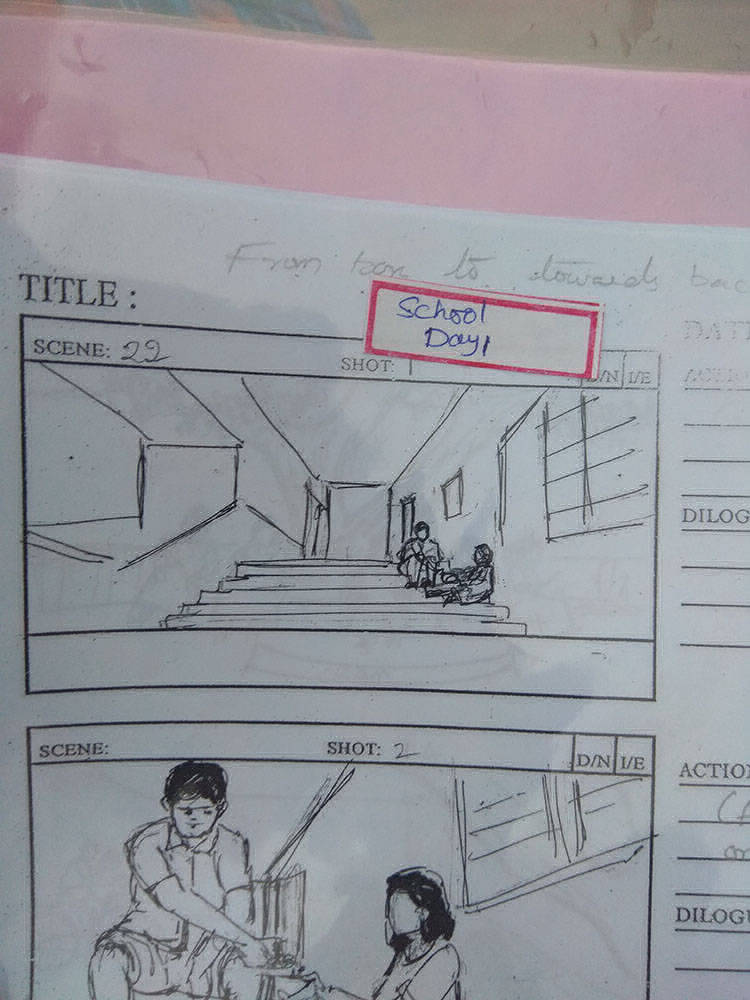 From to towards bac
TITLE :
School
Day,
DAT
SCENE: 22
SHOT: 1
D/N I/E
DILOG
SCENE:
SHOT: 2
D/N I/E
ACTION
DILOGU